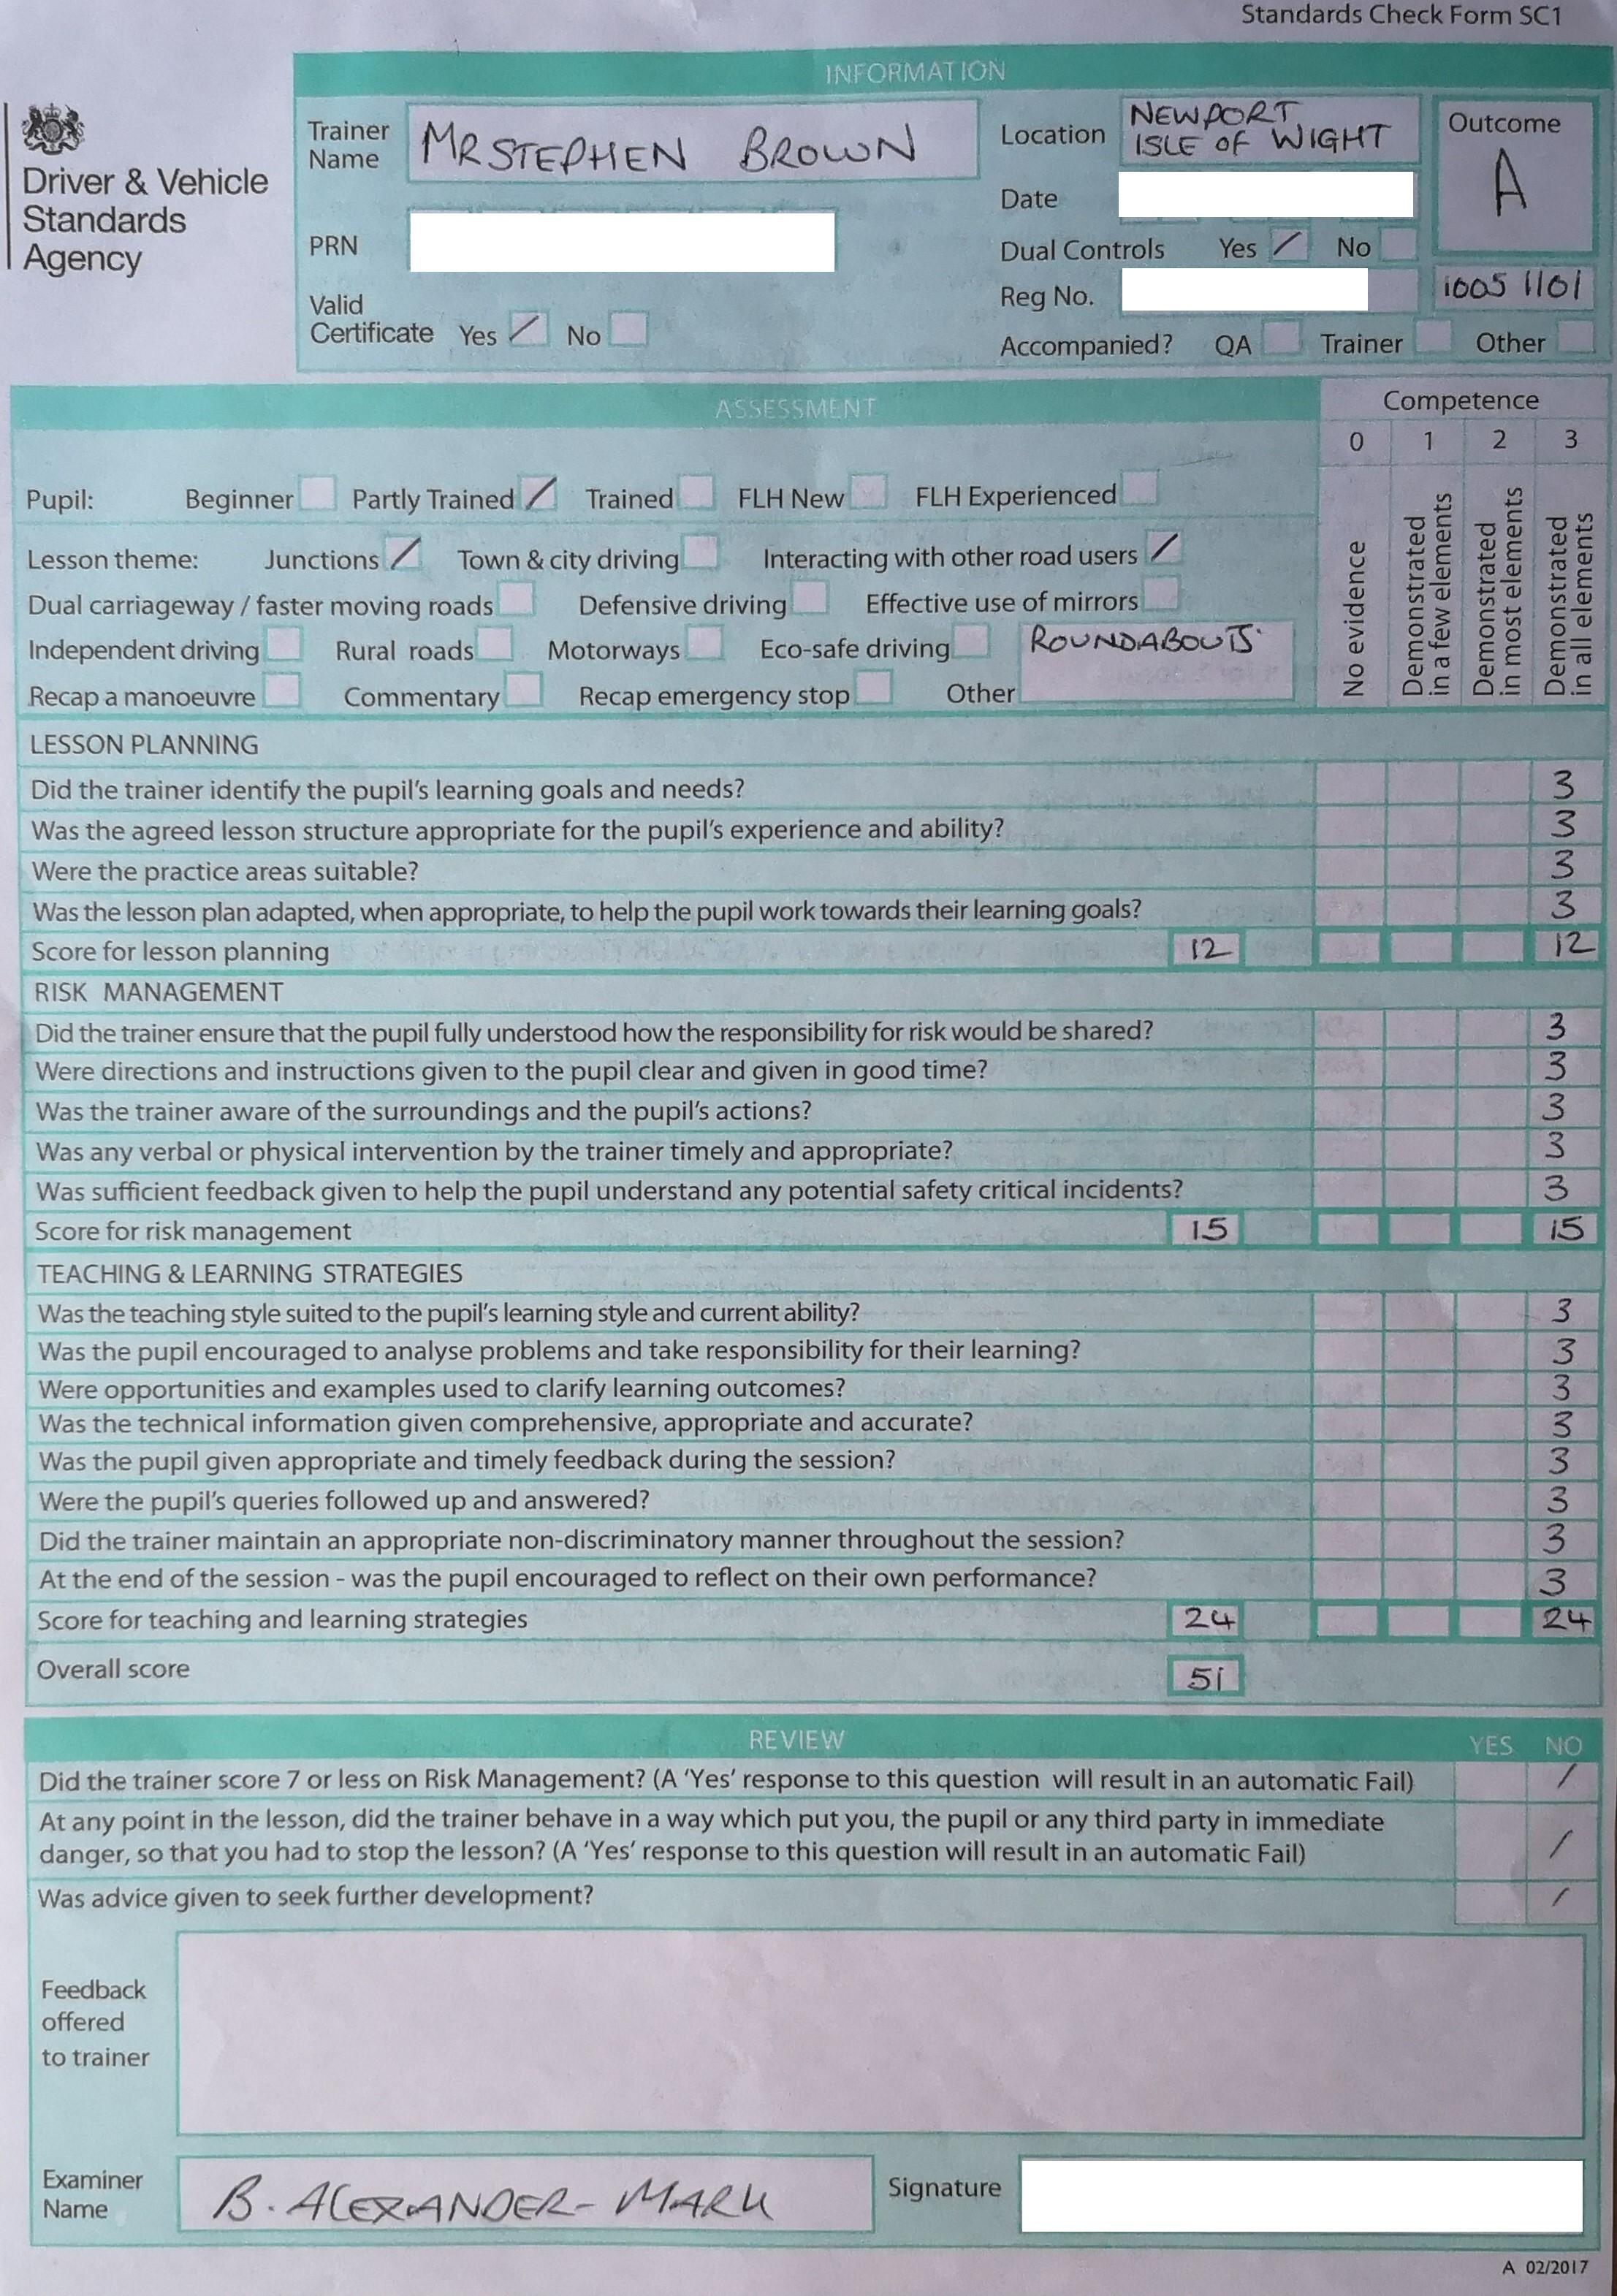 Standards Check Form SC1
INFORMATION
Driver & Vehicle
Standards
Agency
Trainer
Name
MR STEPHEN BROWN
Location
NEWPORT
ISLE OF WIGHT
Outcome
A
Date
PRN
Dual Controls Yes / No
Reg No.
1005 1101
Valid
Certificate Yes / No
Accompanied? QA Trainer Other
ASSESSMENT
Competence
0 1 2 3
No evidence
Demonstrated
in a few elements
Demonstrated
in most elements
Demonstrated
in all elements
Pupil: Beginner Partly Trained / Trained FLH New FLH Experienced
Lesson theme: Junctions / Town & city driving Interacting with other road users /
Dual carriageway / faster moving roads Defensive driving Effective use of mirrors
Independent driving Rural roads Motorways Eco-safe driving ROUNDABOUTS
Recap a manoeuvre Commentary Recap emergency stop Other
LESSON PLANNING
Did the trainer identify the pupil's learning goals and needs? 3
Was the agreed lesson structure appropriate for the pupil's experience and ability? 3
Were the practice areas suitable? 3
Was the lesson plan adapted, when appropriate, to help the pupil work towards their learning goals? 3
Score for lesson planning 12 12
RISK MANAGEMENT
Did the trainer ensure that the pupil fully understood how the responsibility for risk would be shared? 3
Were directions and instructions given to the pupil clear and given in good time? 3
Was the trainer aware of the surroundings and the pupil's actions? 3
Was any verbal or physical intervention by the trainer timely and appropriate? 3
Was sufficient feedback given to help the pupil understand any potential safety critical incidents? 3
Score for risk management 15 15
TEACHING & LEARNING STRATEGIES
Was the teaching style suited to the pupil's learning style and current ability? 3
Was the pupil encouraged to analyse problems and take responsibility for their learning? 3
Were opportunities and examples used to clarify learning outcomes? 3
Was the technical information given comprehensive, appropriate and accurate? 3
Was the pupil given appropriate and timely feedback during the session? 3
Were the pupil's queries followed up and answered? 3
Did the trainer maintain an appropriate non-discriminatory manner throughout the session? 3
At the end of the session - was the pupil encouraged to reflect on their own performance? 3
Score for teaching and learning strategies 24 24
Overall score 51
REVIEW YES NO
Did the trainer score 7 or less on Risk Management? (A 'Yes' response to this question will result in an automatic Fail) /
At any point in the lesson, did the trainer behave in a way which put you, the pupil or any third party in immediate
danger, so that you had to stop the lesson? (A 'Yes' response to this question will result in an automatic Fail) /
Was advice given to seek further development? /
Feedback
offered
to trainer
Examiner
Name
B. ALEXANDER-MARK
Signature
A 02/2017